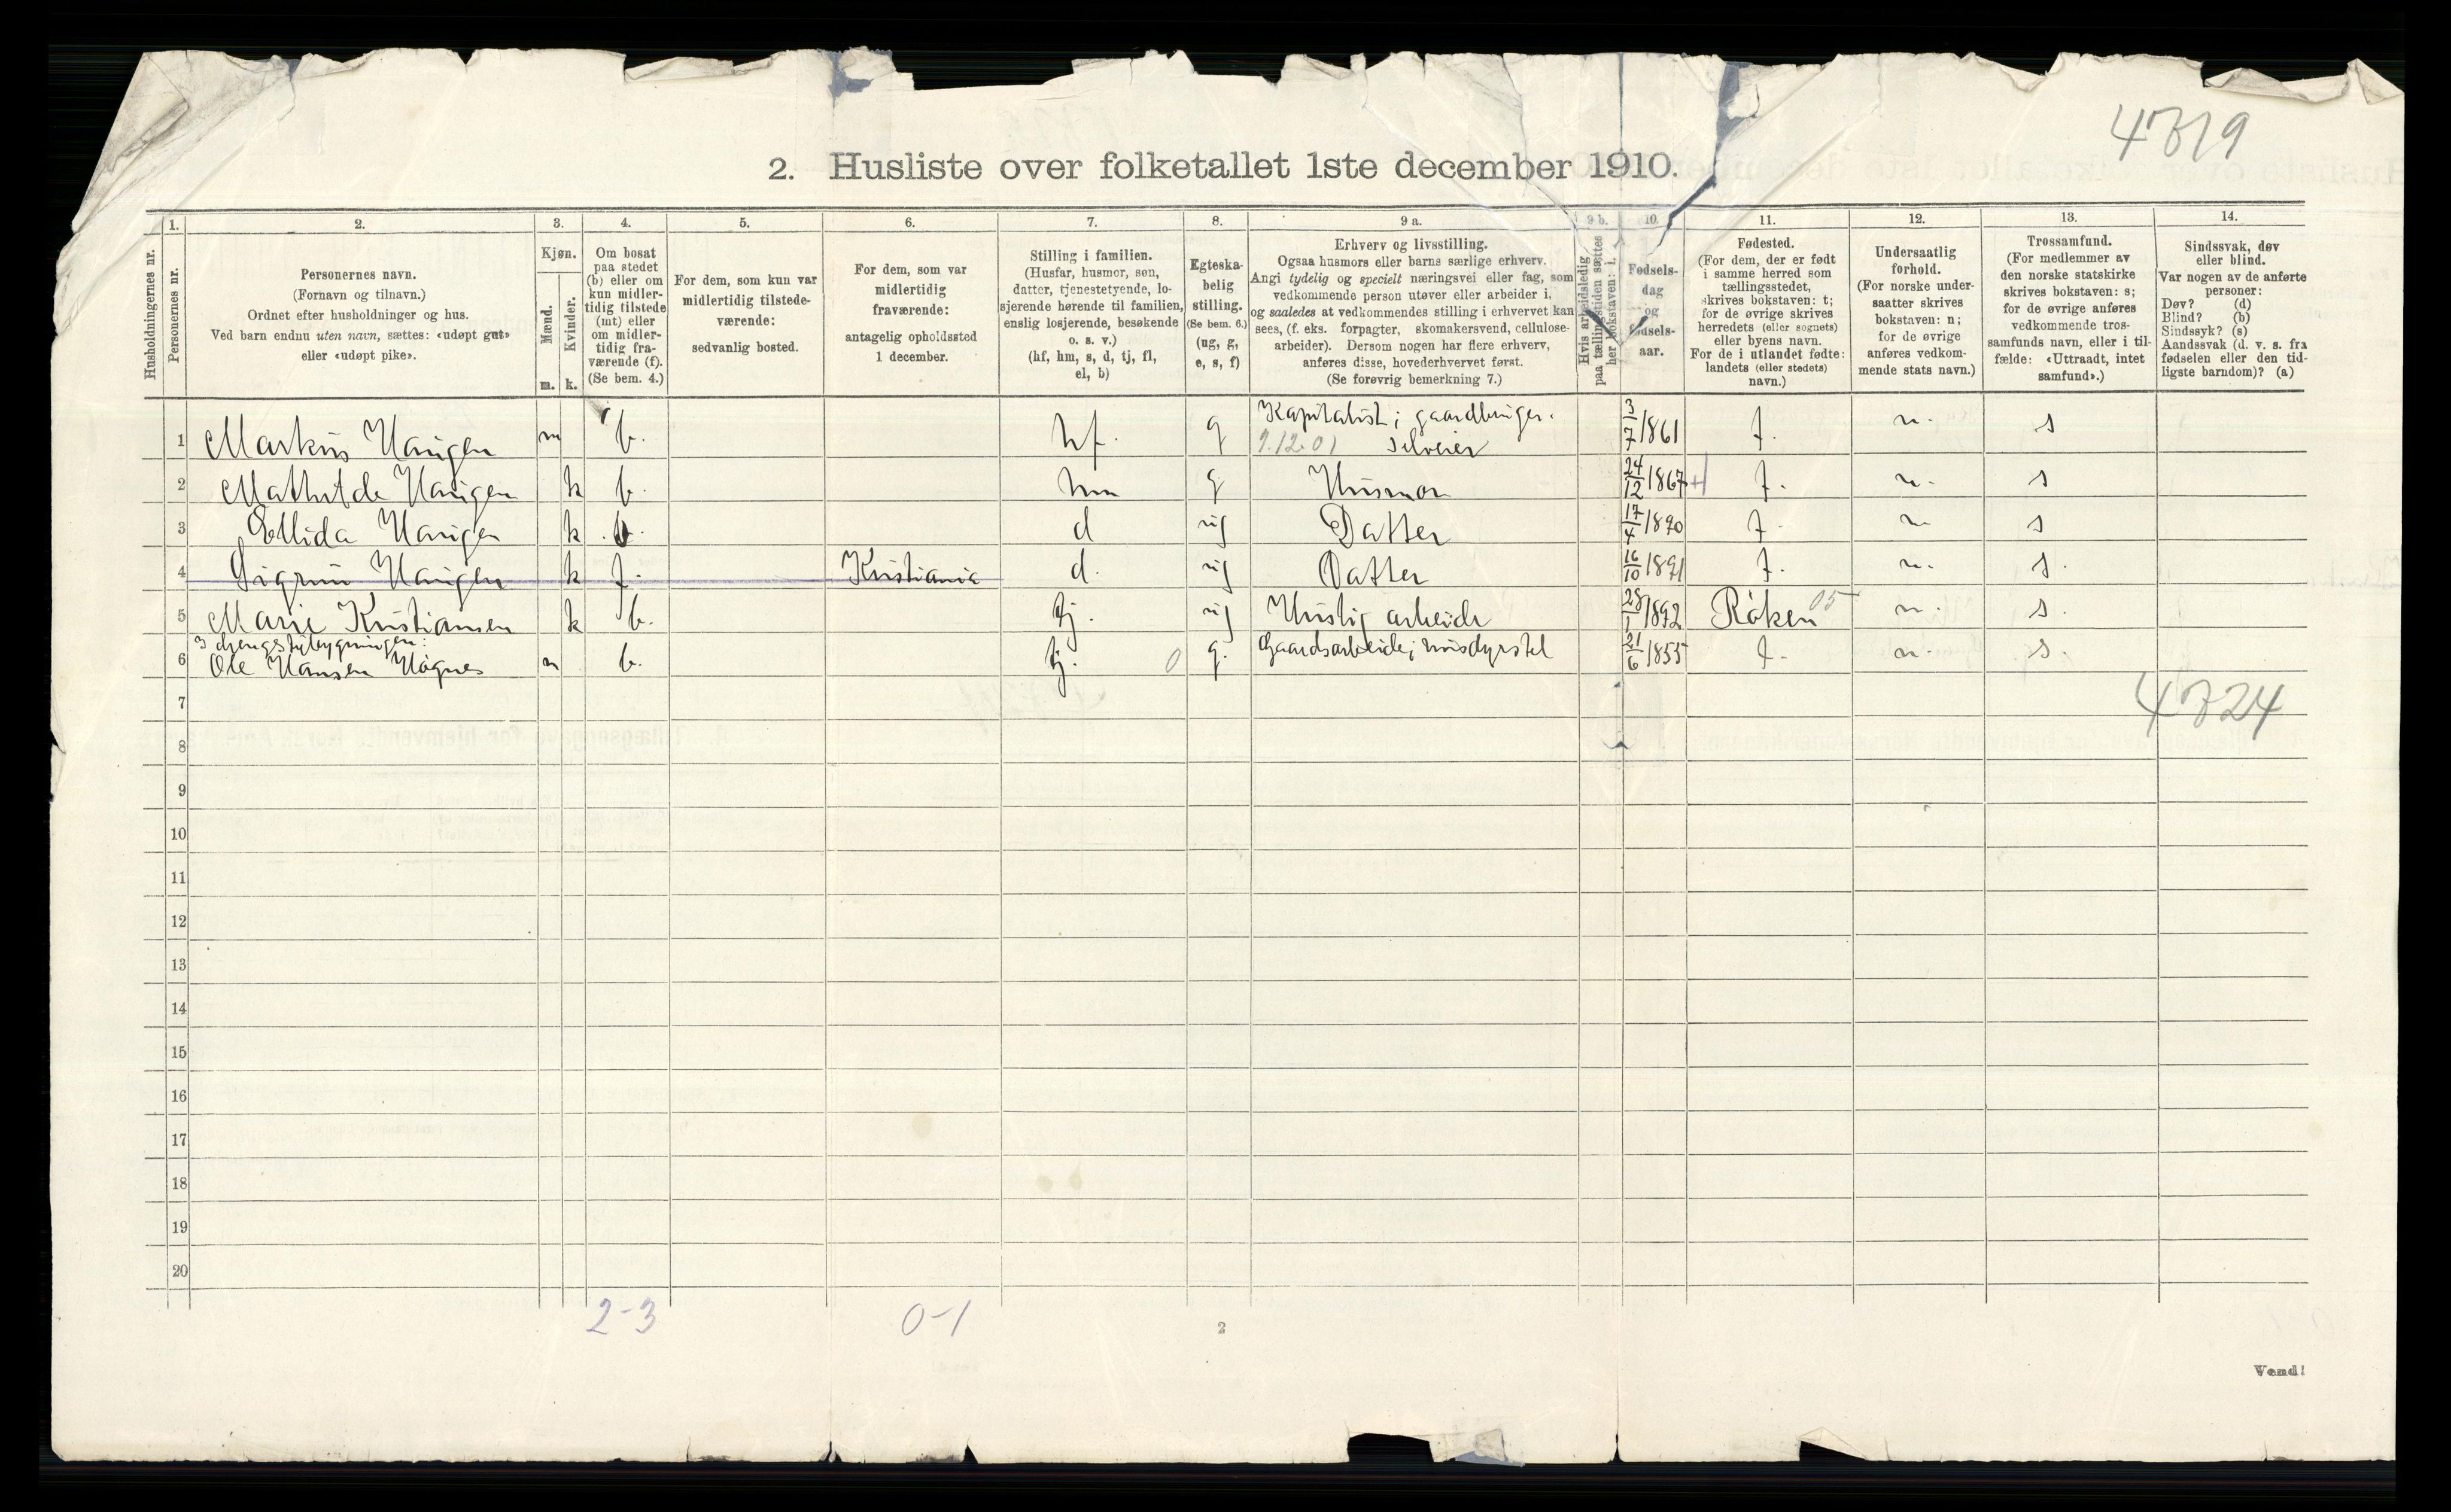 4719
2. Husliste over folketallet 1ste december 1910.
Husholdningernes nr.
1.
Personernes nr.
2.
Personernes navn.
(Fornavn og tilnavn.)
Ordnet efter husholdninger og hus.
Ved barn endnu uten navn, sættes: «udøpt gut»
eller «udøpt pike».
3.
Kjøn.
Mænd.
Kvinder.
m.
k.
4.
Om bosat
paa stedet
(b) eller om
kun midler-
tidig tilstede
(mt) eller
om midler-
tidig fra-
værende (f).
(Se bem. 4.)
5.
For dem, som kun var
midlertidig tilstede-
værende:
sedvanlig bosted.
6.
For dem, som var
midlertidig
fraværende:
antagelig opholdssted
1 december.
7.
Stilling i familien.
(Husfar, husmor, søn,
datter, tjenestetyende, lo-
sjerende hørende til familien,
enslig losjerende, besøkende
o. s. v.)
(hf, hm, s, d, tj, fl,
el, b)
8.
Egteska-
belig
stilling.
(Se bem. 6.)
(ug, g,
e, s, f)
9 a.
Erhverv og livsstilling.
Ogsaa husmors eller barns særlige erhverv.
Angi tydelig og specielt næringsvei eller fag, som
vedkommende person utøver eller arbeider i,
og saaledes at vedkommendes stilling i erhvervet kan
sees, (f. eks. forpagter, skomakersvend, cellulose-
arbeider). Dersom nogen har flere erhverv,
anføres disse, hovederhvervet først.
(Se forøvrig bemerkning 7.)
9 b.
Hvis arbeidsledig
paa tællingstiden sættes
her bokstaven: l.
10.
Fødsels-
dag
og
fødsels-
aar.
11.
Fødested.
(For dem, der er født
i samme herred som
tællingsstedet,
skrives bokstaven: t;
for de øvrige skrives
herredets (eller sognets)
eller byens navn.
For de i utlandet fødte:
landets (eller stedets)
navn.)
12.
Undersaatlig
forhold.
(For norske under-
saatter skrives
bokstaven: n;
for de øvrige
anføres vedkom-
mende stats navn.)
13.
Trossamfund.
(For medlemmer av
den norske statskirke
skrives bokstaven: s;
for de øvrige anføres
vedkommende tros-
samfunds navn, eller i til-
fælde: «Uttraadt, intet
samfund».)
14.
Sindssvak, døv
eller blind.
Var nogen av de anførte
personer:
Døv? (d)
Blind? (b)
Sindssyk? (s)
Aandssvak (d. v. s. fra
fødselen eller den tid-
ligste barndom)? (a)
1 Markus Haugen m b. hf. g Kapitalist; gaardbruger. 3/7 1861 t. n. s
9.12.01 Selveier
2 Mathilde Haugen k b. hm g Husmor 24/12 1867 t. n. s
3 Ellida Haugen k b. d ug Datter 17/4 1890 t. n s
4 Sigrun Haugen k f. Kristiania d. ug Datter 16/10 1891 t. n. s.
5 Marie Kristiansen k b. tj. ug Huslig arbeide 28/1 1892 Röken 05 n. s.
6 Ole Hansen m b. tj. 0 g. Gaardsarbeide; husdyrstel 21/6 1855 t. n. s.
4724
7
8
9
10
11
12
13
14
15
16
17
18
19
20
2-3
0-1
2
Vend!